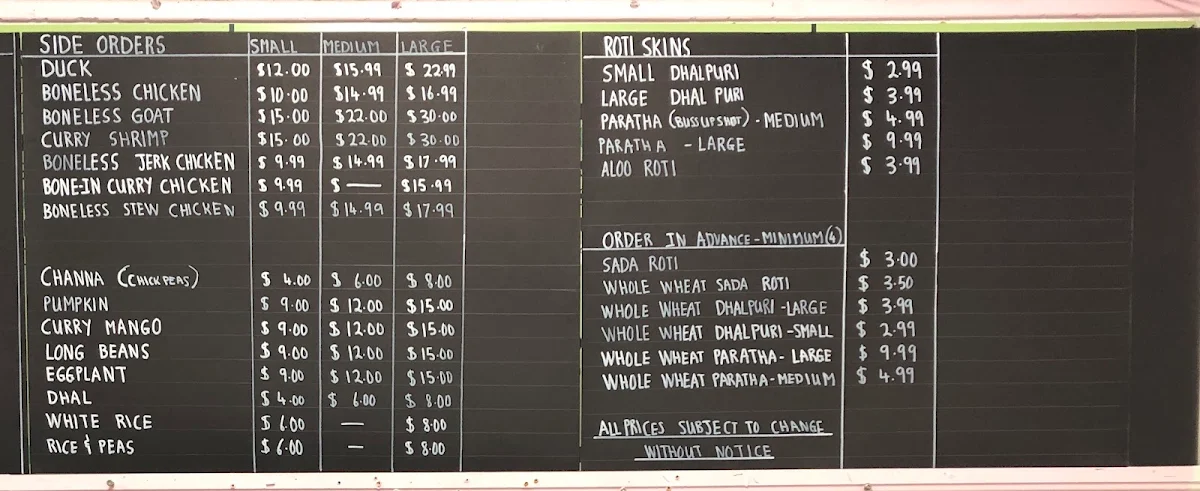 SIDE ORDERS SMALL MEDIUM LARGE
DUCK $12.00 $15.99 $ 22.99
BONELESS CHICKEN $10.00 $14.99 $16.99
BONELESS GOAT $15.00 $22.00 $30.00
CURRY SHRIMP $15.00 $22.00 $30.00
BONELESS JERK CHICKEN $9.99 $14.99 $17.99
BONE-IN CURRY CHICKEN $9.99 $ — $15.99
BONELESS STEW CHICKEN $9.99 $14.99 $17.99
CHANNA (CHICK PEAS) $ 4.00 $ 6.00 $ 8.00
PUMPKIN $ 9.00 $ 12.00 $15.00
CURRY MANGO $ 9.00 $ 12.00 $15.00
LONG BEANS $ 9.00 $ 12.00 $15.00
EGGPLANT $ 9.00 $ 12.00 $15.00
DHAL $ 4.00 $ 6.00 $ 8.00
WHITE RICE $ 6.00 — $ 8.00
RICE & PEAS $ 6.00 — $ 8.00
ROTI SKINS
SMALL DHALPURI $ 2.99
LARGE DHAL PURI $ 3.99
PARATHA (BUSS UP SHOT) - MEDIUM $ 4.99
PARATHA - LARGE $ 9.99
ALOO ROTI $ 3.99
ORDER IN ADVANCE - MINIMUM (4)
SADA ROTI $ 3.00
WHOLE WHEAT SADA ROTI $ 3.50
WHOLE WHEAT DHALPURI - LARGE $ 3.99
WHOLE WHEAT DHALPURI - SMALL $ 2.99
WHOLE WHEAT PARATHA - LARGE $ 9.99
WHOLE WHEAT PARATHA - MEDIUM $ 4.99
ALL PRICES SUBJECT TO CHANGE
WITHOUT NOTICE